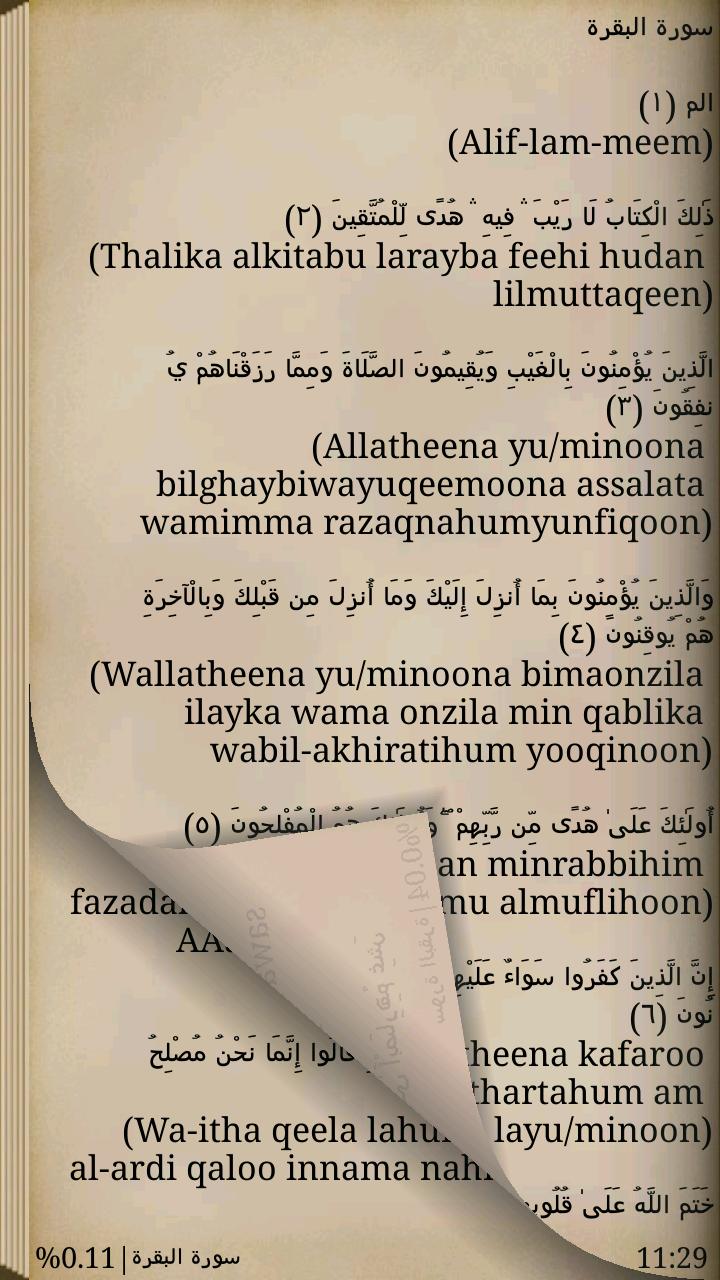 سورة البقرة
الم (١)
(Alif-lam-meem)
ذَٰلِكَ الْكِتَابُ لَا رَيْبَ ۛ فِيهِ ۛ هُدًى لِّلْمُتَّقِينَ (٢)
(Thalika alkitabu larayba feehi hudan
lilmuttaqeen)
الَّذِينَ يُؤْمِنُونَ بِالْغَيْبِ وَيُقِيمُونَ الصَّلَاةَ وَمِمَّا رَزَقْنَاهُمْ يُ
نفِقُونَ (٣)
(Allatheena yu/minoona
bilghaybiwayuqeemoona assalata
wamimma razaqnahumyunfiqoon)
وَالَّذِينَ يُؤْمِنُونَ بِمَا أُنزِلَ إِلَيْكَ وَمَا أُنزِلَ مِن قَبْلِكَ وَبِالْآخِرَةِ
هُمْ يُوقِنُونَ (٤)
(Wallatheena yu/minoona bimaonzila
ilayka wama onzila min qablika
wabil-akhiratihum yooqinoon)
أُولَٰئِكَ عَلَىٰ هُدًى مِّن رَّبِّهِمْ ۖ هُمُ الْمُفْلِحُونَ (٥)
an minrabbihim
fazada mu almuflihoon)
إِنَّ الَّذِينَ كَفَرُوا سَوَاءٌ عَلَيْهِ
نُونَ (٦)
theena kafaroo
قَالُوا إِنَّمَا نَحْنُ مُصْلِحُ
thartahum am
(Wa-itha qeela lahu layu/minoon)
al-ardi qaloo innama nah
خَتَمَ اللَّهُ عَلَىٰ قُلُوبِهِ
%0.11|سورة البقرة 11:29